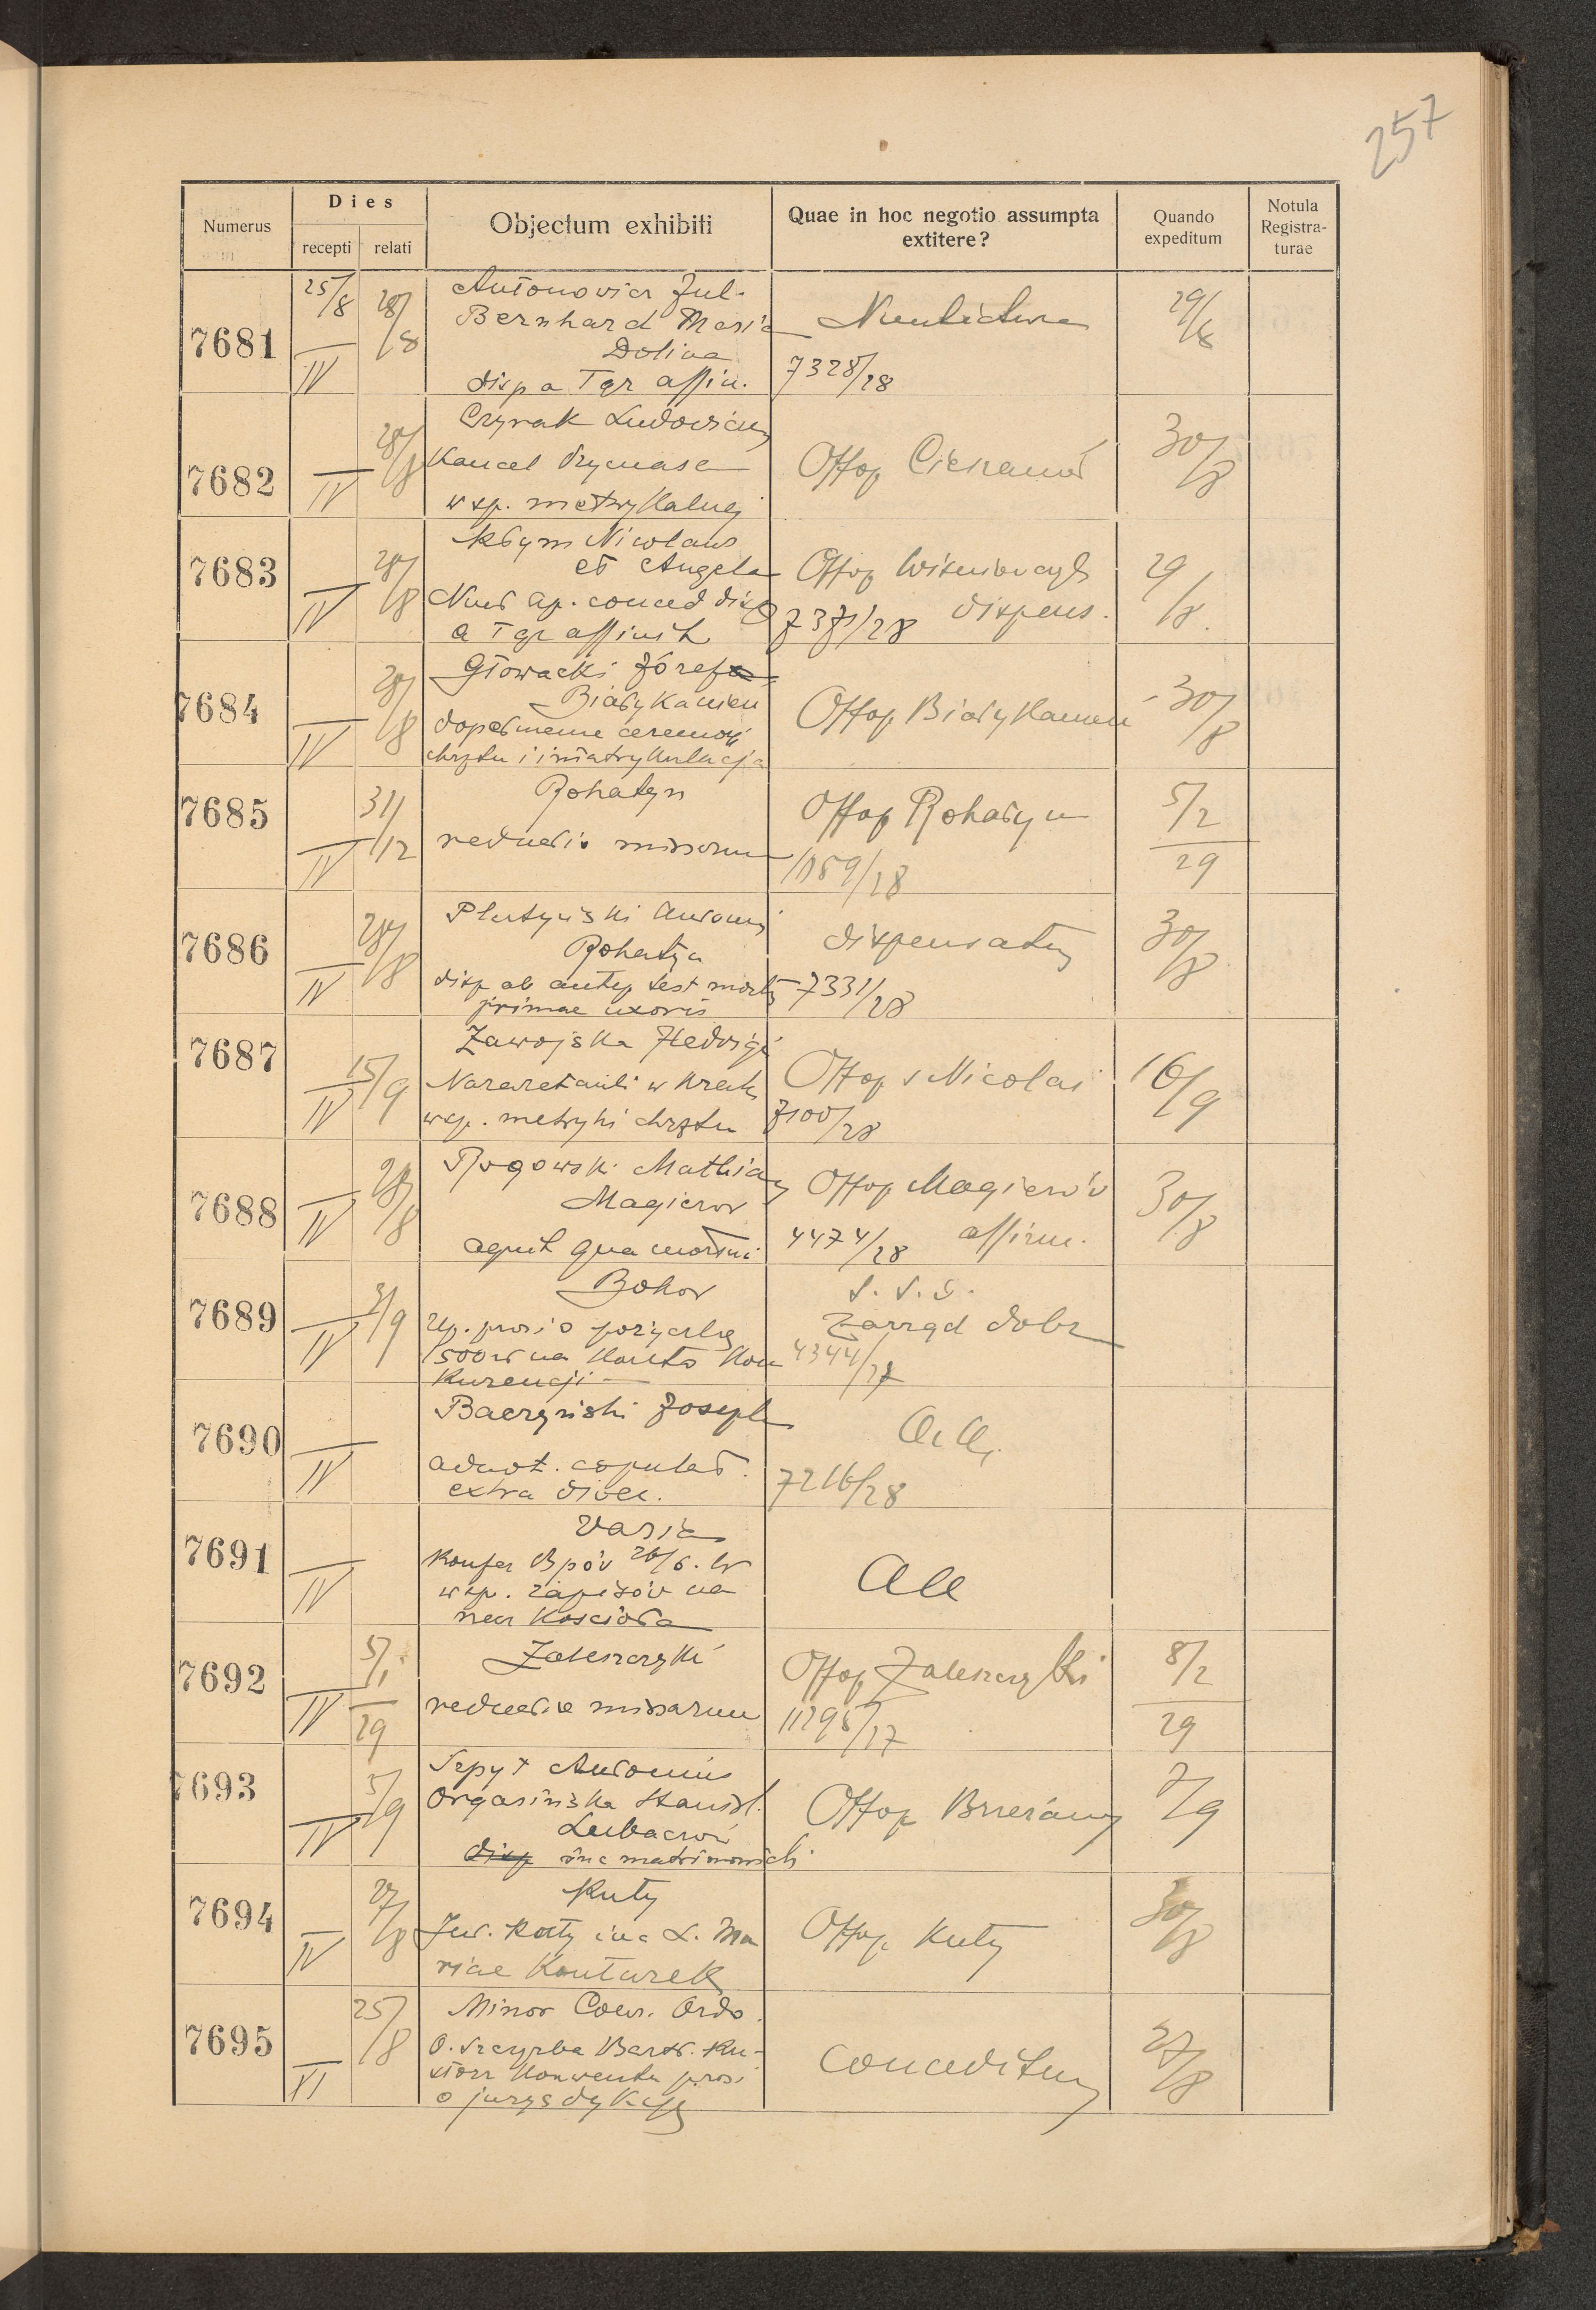 257
Numerus
Dies
recepti relati
Objectum exhibiti
Quae in hoc negotio assumpta
extitere?
Quando
expeditum
Notula
Registra-
turae
7681
25/8
IV
28/8
Antonowicz Jul.
Bernhard Maria
Dolina
disp a I gr affin.
7328/28
29/8
7682
IV
28/8
Czyrak Ludovicus
Kancel Prymasa
w sp. metrykalnej
Offop Cieszanów
30/8
7683
IV
28/8
Kłym Nicolaus
et Angela
Nunt ap. conced disp
a I gr affinit
Offop Wiśniowczyk
7371/28 dispens.
29/8.
7684
IV
28/8
Głowacki Józef
Biały Kamień
dopełnienie ceremonij
chrztu i imatrykulacja
Offop Biały Kamień
30/8
7685
IV
31/12
Rohatyn
reductio missarum
Offop Rohatyn
1159/28
5/2
29
7686
IV
28/8
Rohatyn
disp ab autep test mortis
primae uxoris
dispensatur
7331/28
30/8
7687
IV
15/9
Zawojska Hedvigi
Nazaretanki w Krak
wsp. metryki chrztu
Offop s Nicolai
7100/28
16/9
7688
IV
28/8
Rogowski Mathias
Magierow
Offop Magierów
4474/28 affirm.
30/8
7689
IV
3/9
Bokow
rp. prosi o pożyczkę
1500 zł na konto kon
kurencji
Zarząd dobr
4344/27
7690
IV
Baczyński Joseph
adnot. copulat.
extra dioec.
7216/28
7691
IV
Varia
Konfer Bpów 26/6. W
wsp. zapisów na
rzecz Kościoła
7692
IV
5/1
29
Zaleszczyki
reductio missarum
Offop Zaleszczyki
11295/27
8/2
29
7693
IV
5/9
Szpyt Antonius
Orgasińska Stanisl.
Lubaczów
disp in c matrimonial
Offop Brzeżany
7/9
7694
IV
27/8
Kuty
in c L. Ma
riae Konturek
Offop Kuty
30/8
7695
XI
25/8
Minor Conv. Ordo.
O. Szczyrba Bartł. Ku-
stosz Konwentu prosi
o jurysdykcję
conceditur
27/8